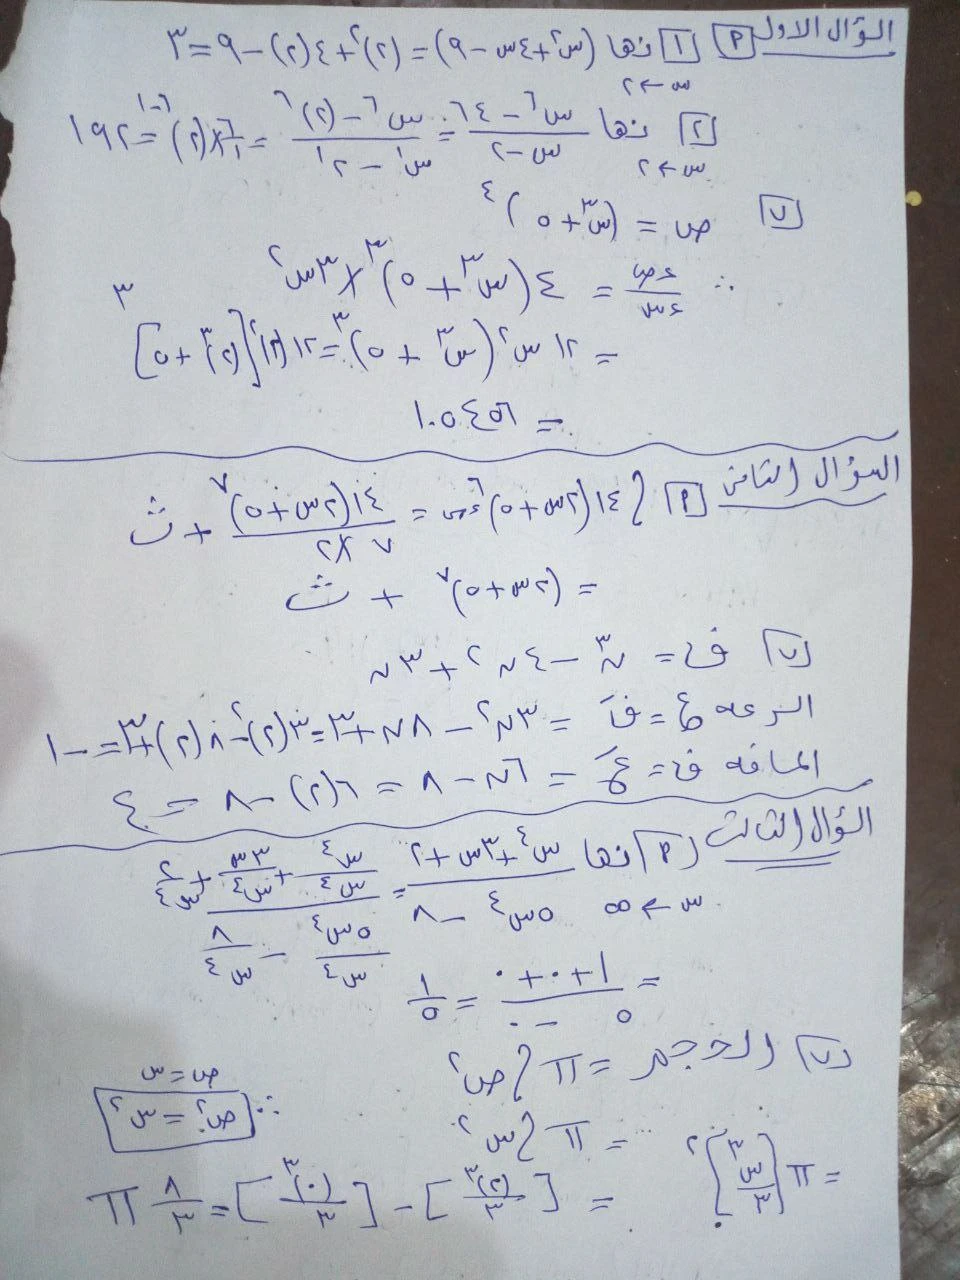 السؤال الاول [أ] [١] نها (س٢ + ٤س − ٩) = (٢)٢ + ٤(٢) − ٩ = ٣
س ← ٢
[٢] نها (س٦ − ٦٤)/(س − ٢) = (س٦ − (٢)٦)/(س١ − ٢١) = ٦/١ × (٢)٦−١ = ١٩٢
س ← ٢
[ب] ص = (س٣ + ٥)٤
∴ ءص/ءس = ٤(س٣ + ٥)٣ × ٣س٢
= ١٢س٢(س٣ + ٥)٣ = ١٢(٢)٢[(٢)٣ + ٥]٣
= ١٠٥٤٥٦
السؤال الثاني [أ] ∫١٤(٢س + ٥)٦ ءس = ١٤(٢س + ٥)٧/(٧ × ٢) + ث
= (٢س + ٥)٧ + ث
[ب] ف = ن٣ − ٤ن٢ + ٣ن
السرعه ع = فَ = ٣ن٢ − ٨ن + ٣ = ٣(٢)٢ − ٨(٢) + ٣ = −١
المسافه ف = عَ = ٦ن − ٨ = ٦(٢) − ٨ = ٤
السؤال الثالث [أ] نها (س٤ + ٣س + ٢)/(٥س٤ − ٨) = (س٤/س٤ + ٣س/س٤ + ٢/س٤)/(٥س٤/س٤ − ٨/س٤)
س ← ∞
= (١ + ٠ + ٠)/(٥ − ٠) = ١/٥
[ب] الحجم = π ∫ص٢
ص = س
= π ∫س٢ ∴ ص٢ = س٢
= π [س٣/٣]٢٠ = [(٢)٣/٣] − [(٠)٣/٣] = ٨/٣ π